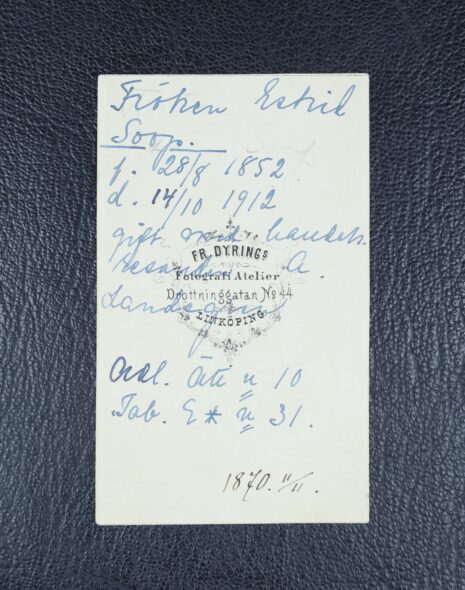 Fröken Estrid
Soop.
f. 28/8 1852
d. 14/10 1912
gift med handels-
resanden A.
Landegren
FR. DYRINGS
Fotografi Atelier
Drottninggatan No 44
LINKÖPING
Adl. Ätt n 10
Tab. E* n 31.
1870. 11/11.